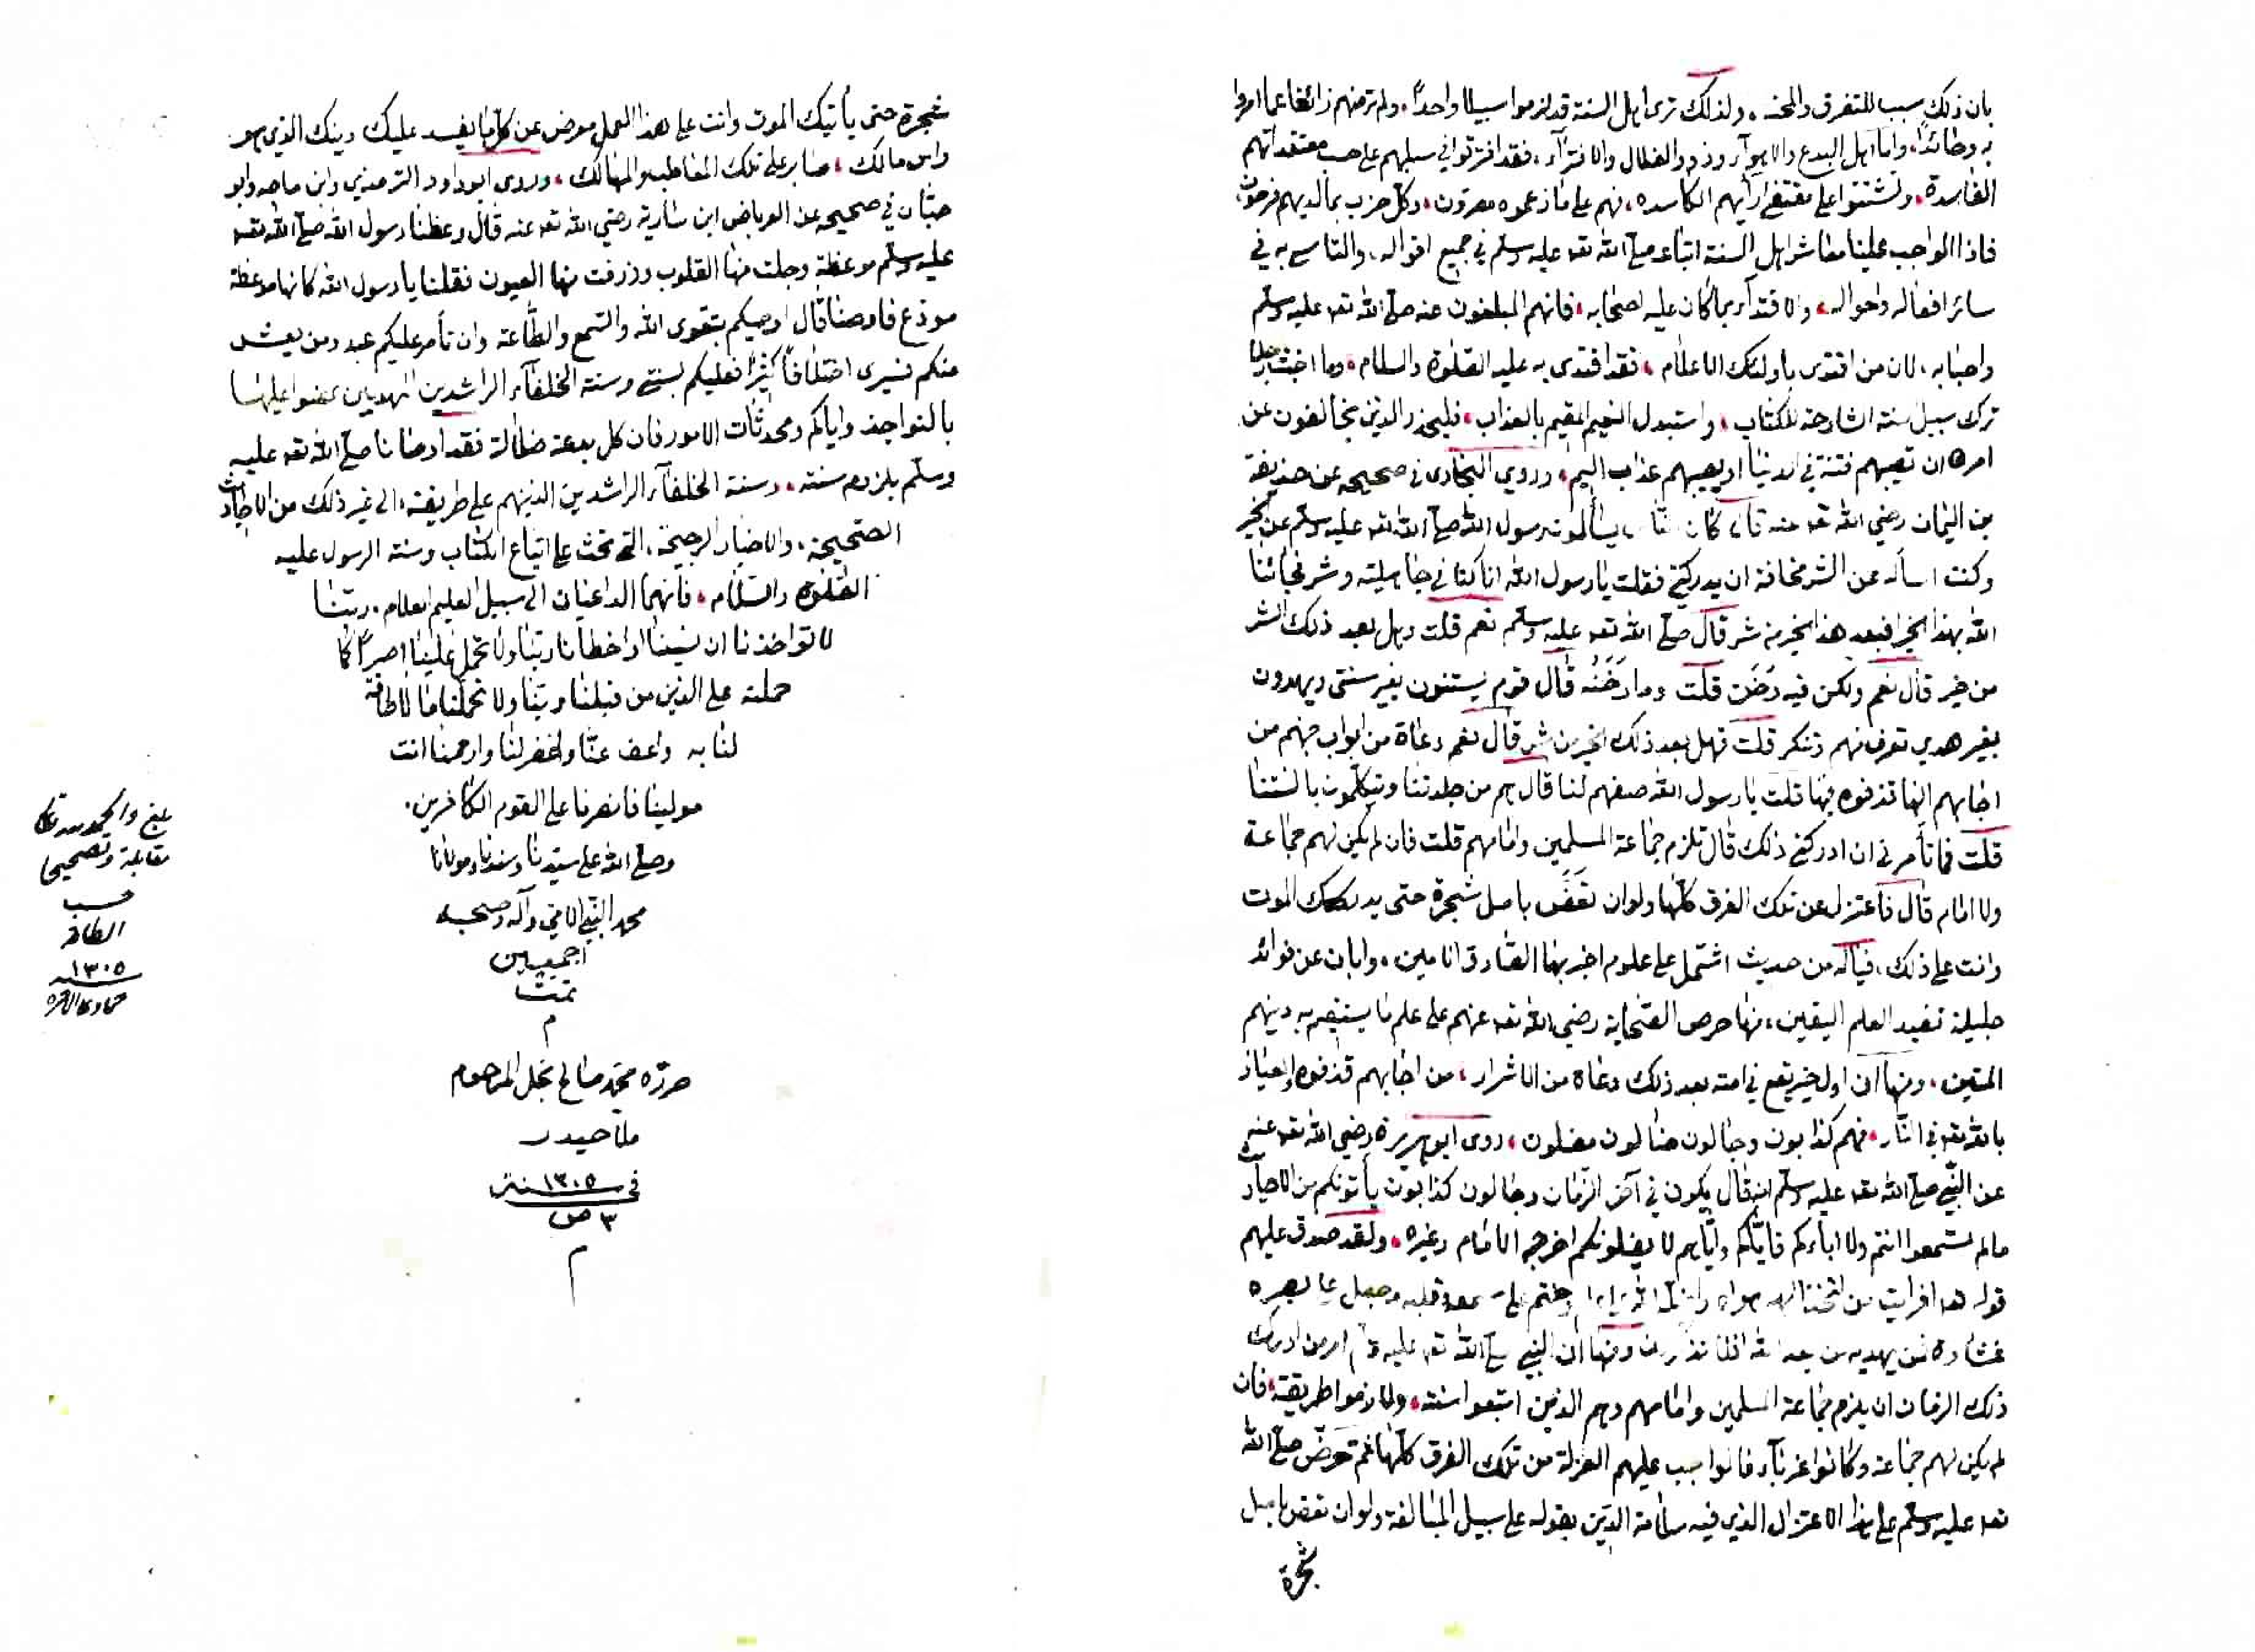 بان ذلك سبب للتفرق والمحنه، ولذلك ترى اهل السنة قد لزموا سبيلا واحدًا، ولم تر منهم زائغا عما امروا
به وحائدًا، واما اهل البدع والاهوآء وذوو الضلال والافترآء، فقد افترقوا في سبلهم على حسب معتقداتهم
الفاسدة، وتشتتوا على مقتضى ارآئهم الكاسده، فهم على ما زعموه مصرون، وكل حزب بما لديهم فرحون،
فاذا الواجب علينا معاشر اهل السنة اتباعه صلى الله تعه عليه وسلم في جميع اقواله، والتاسي به في
سائر افعاله واحواله، والاقتدآء بما كان عليه اصحابه، فانهم المبلغون عنه صلى الله تعه عليه وسلم
واحبابه، لان من اقتدى باولئك الاعلام، فقد اقتدى به عليه الصلوة والسلام، وما اخيب رجلا
ترك سبيل سنة الشارحة للكتاب، واستبدل النعيم المقيم بالعذاب، فليحذر الذين يخالفون عن
امره ان تصيبهم فتنة في الدنيا او يصيبهم عذاب اليم، وروي البخارى في صحيحه عن حذيفة
بن اليمان رضي الله تعه عنه قال كان الناس يسألون رسول الله صلى الله تعه عليه وسلم عن الخير
وكنت اسأله عن الشر مخافة ان يدركني فقلت يا رسول الله انا كنا في جاهلية وشر فجائنا
الله بهذا الخير فبعد هذا الخير من شر قال صلى الله تعه عليه وسلم نعم قلت وهل بعد ذلك الشر
من خير قال نعم ولكن فيه دَخَن قلت وما دَخَنُه قال قوم يستنون بغير سنتى ويهدون
بغير هدي تعرف منهم وتنكر قلت فهل بعد ذلك الخير من شر قال نعم دعاة من ابواب جهنم من
اجابهم اليها قذفوه فيها قلت يا رسول الله صفهم لنا قال هم من جلدتنا ويتكلمون بالسنتنا
قلت فما تأمرني ان ادركني ذلك قال تلزم جماعة المسلمين وامامهم قلت فان لم يكن لهم جماعة
ولا امام قال فاعتزل عن تلك الفرق كلها ولو ان تَعَضَّ باصل شجرة حتى يدركك الموت
وانت على ذلك، فياله من حديث اشتمل على علوم اخبر بها الصادق الامين، وابان عن فوائد
جليلة تفيد العلم اليقين، منها حرص الصحابة رضي الله تعه عنهم على علم ما يستقيم به دينهم
المتين، ومنها ان اول خير يقع في امته بعد ذلك دعاة من الاشرار، من اجابهم قذفوه والعياذ
بالله تعه في النار، فهم كذابون دجالون ضالون مضلون، روى ابو هريرة رضي الله تعه عنه
عن النبي صلى الله تعه عليه وسلم انه قال يكون في آخر الزمان دجالون كذابون يأتونكم من الاحاديث
ما لم تسمعوا انتم ولا اباءكم فاياكم واياهم لا يضلونكم اخرجه الامام وغيره، ولقد صدق عليهم
قوله تعه افرايت من اتخذ الهه هواه واضله الله على علم وختم على سمعه وقلبه وجعل على بصره
غشاوة فمن يهديه من بعد الله افلا تذكرون ومنها ان النبي صلى الله تعه عليه وسلم امر من ادرك
ذلك الزمان ان يلزم جماعة المسلمين وامامهم وهم الذين اتبعوا سنته، ولازموا طريقته، فان
لم يكن لهم جماعة وكانوا غربآء فالواجب عليهم العزلة من تلك الفرق كلها ثم حرض صلى الله
تعه عليه وسلم على هذا الاعتزال الذي فيه سلامة الدين بقوله على سبيل المبالغة ولو ان تعض باصل
شجرة
شجرة حتى يأتيك الموت وانت على هذا العمل معرض عن كل ما يفسد عليك دينك الذي هو
راس مالك، صابر على تلك المعاطب والمهالك، وروى ابو داود الترمذي وابن ماجه وابو
حبان في صحيحه عن العرباض ابن سارية رضي الله تعه عنه قال وعظنا رسول الله صلى الله تعه
عليه وسلم موعظة وجلت منها القلوب وذرفت منها العيون فقلنا يا رسول الله كانها موعظة
مودع فاوصنا قال اوصيكم بتقوى الله والسمع والطاعة وان تأمر عليكم عبد ومن يعش
منكم فسيرى اختلافًا كثيرًا فعليكم بسنتي وسنة الخلفآء الراشدين المهديين عضوا عليها
بالنواجذ واياكم ومحدثات الامور فان كل بدعة ضلالة فقد اوصانا صلى الله تعه عليه
وسلم بلزوم سنته، وسنة الخلفآء الراشدين الذينهم على طريقته، الى غير ذلك من الاحاديث
الصحيحة، والاخبار الرجيحة، التي تحث على اتباع الكتاب وسنة الرسول عليه
الصلوة والسلام، فانهما الداعيان الى سبيل العليم العلام، ربنا
لا تواخذنا ان نسينا او اخطانا ربنا ولا تحمل علينا اصرًا كما
حملته على الذين من قبلنا ربنا ولا تحملنا ما لا طاقة
لنا به واعف عنا واغفر لنا وارحمنا انت
مولينا فانصرنا على القوم الكافرين.
وصلى الله على سيدنا وسندنا ومولانا
محمد النبي الامي وآله وصحبه
اجمعين
تمت
م
حرره محمد صالح نجل المرحوم
ملا حيدر
في ١٣٠٥ سنة
٣ ص
م
بلغ والحمد لله تعالى
مقابلة وتصحيحا
حسب
الطاقة
١٣٠٥
جمادى الاخرة